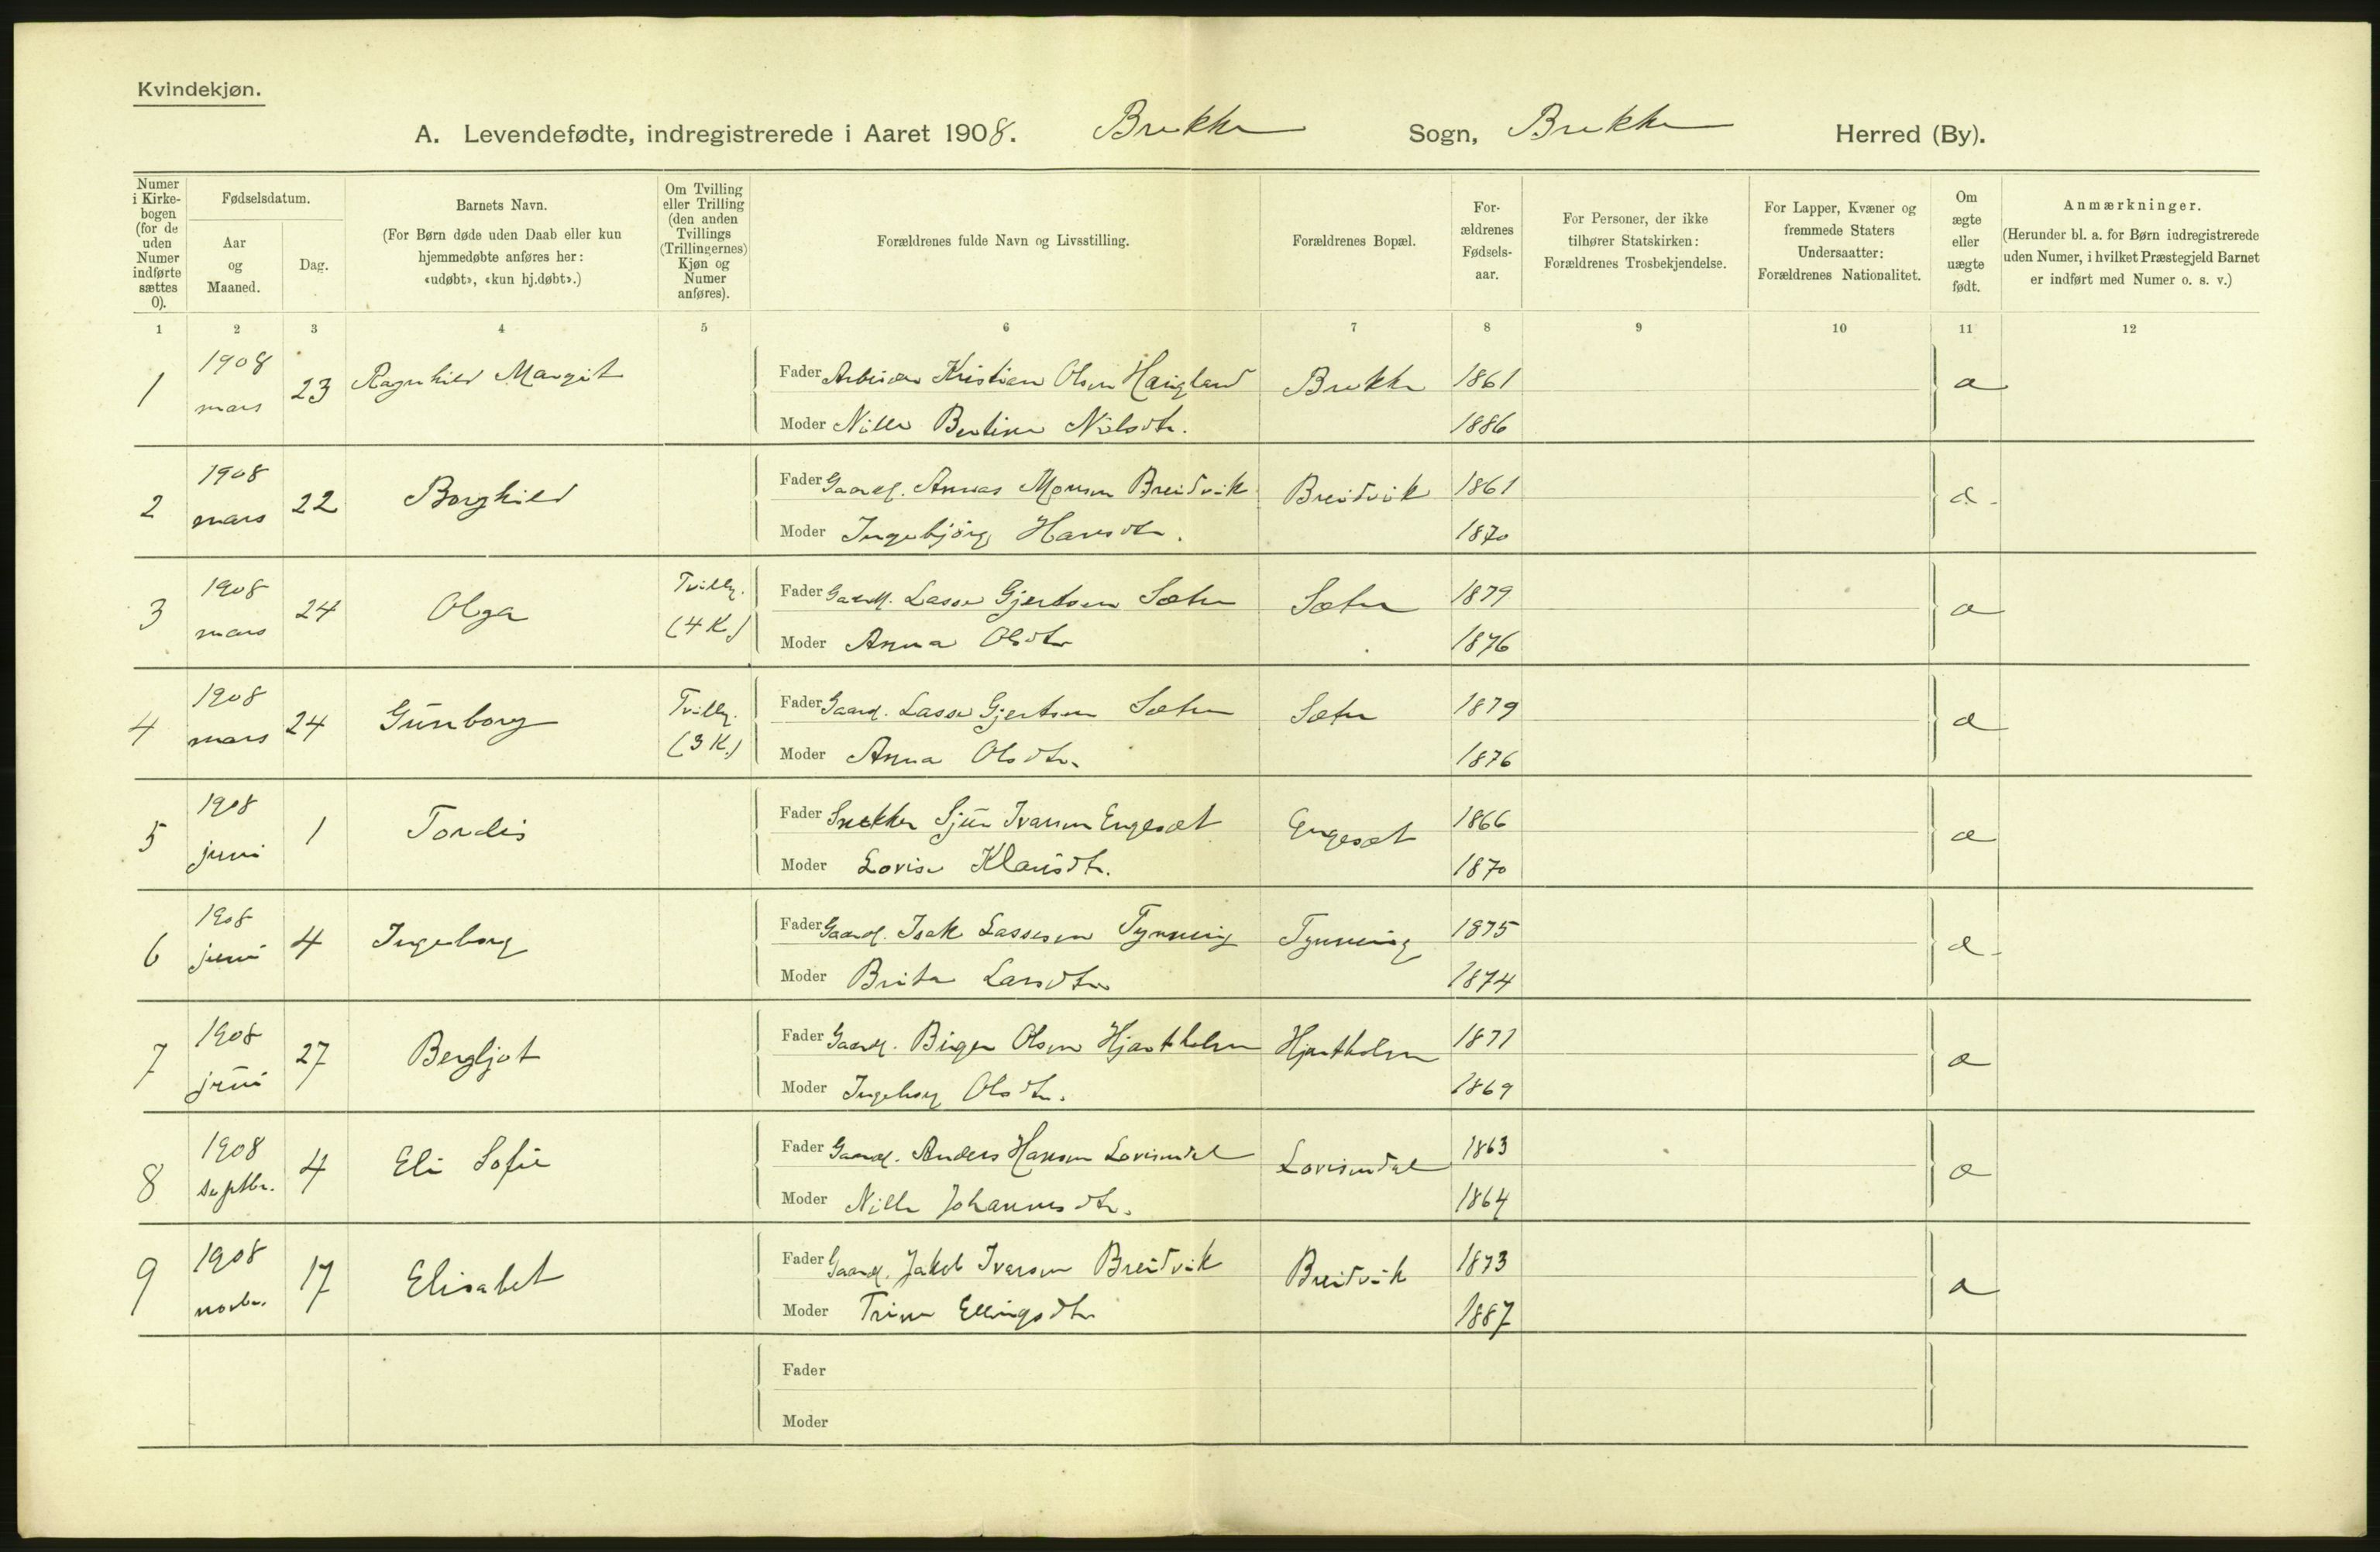 Kvindekjøn.
A. Levendefødte, indregistrerede i Aaret 1908. Brekke Sogn, Brekke Herred (By).
Numer i Kirke-bogen (for de uden Numer indførte sættes 0).
Fødselsdatum.
Aar og Maaned.
Dag.
Barnets Navn.
(For Børn døde uden Daab eller kun hjemmedøbte anføres her: «udøbt», «kun hj.døbt».)
Om Tvilling eller Trilling (den anden Tvillings (Trillingernes) Kjøn og Numer anføres).
Forældrenes fulde Navn og Livsstilling.
Forældrenes Bopæl.
For-ældrenes Fødsels-aar.
For Personer, der ikke tilhører Statskirken: Forældrenes Trosbekjendelse.
For Lapper, Kvæner og fremmede Staters Undersaatter: Forældrenes Nationalitet.
Om ægte eller uægte født.
Anmærkninger.
(Herunder bl. a. for Børn indregistrerede uden Numer, i hvilket Præstegjeld Barnet er indført med Numer o. s. v.)
1 2 3 4 5 6 7 8 9 10 11 12
1 1908 mars 23 Ragnhild Margit Fader Arbeider Kristian Olsen Haugland Brekke 1861 æ
Moder Nille Bertine Nilsdtr. 1886
2 1908 mars 22 Borghild Fader Gaardf. Monsen Breidvik Breidvik 1861 æ
Moder Ingebjörg Hansdtr. 1870
3 1908 mars 24 Olga Tvillg. (4 K.) Fader Gaardf. Lasse Gjertsen Sæter Sæter 1879 æ
Moder Anna Olsdtr 1876
4 1908 mars 24 Gunborg Tvillg. (3 K.) Fader Gaardf. Lasse Gjertsen Sæter Sæter 1879 æ
Moder Anna Olsdtr. 1876
5 1908 juni 1 Tordis Fader Snekker Sjur Ivarsen Engesæt Engesæt 1866 æ
Moder Lovise Klausdtr. 1870
6 1908 juni 4 Ingeborg Fader Gaardf. Isak Lassesen Tynning Tynning 1875 æ
Moder Brita Larsdtr 1874
7 1908 juni 27 Bergljot Fader Gaardf. Birger Olsen Hjartholm Hjartholm 1871 æ
Moder Ingeborg Olsdtr. 1869
8 1908 septbr. 4 Eli Sofie Fader Gaardf. Anders Hansen Lovisendal Lovisendal 1863 æ
Moder Nille Johannesdtr. 1864
9 1908 novbr. 17 Elisabet Fader Gaardf. Jakob Ivarsen Breidvik Breidvik 1873 æ
Moder Trine Ellingsdtr 1887
Fader
Moder